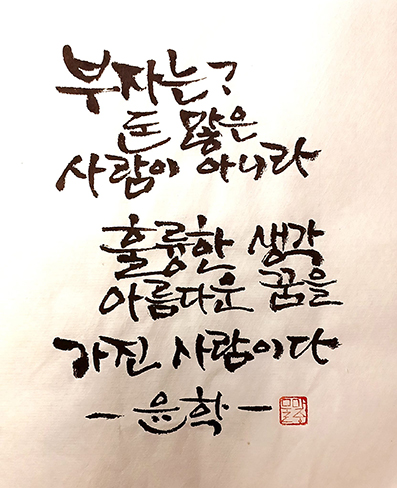 부자는?
돈 많은
사람이 아니라
훌륭한 생각
아름다운 꿈을
가진 사람이다
- 은학 -